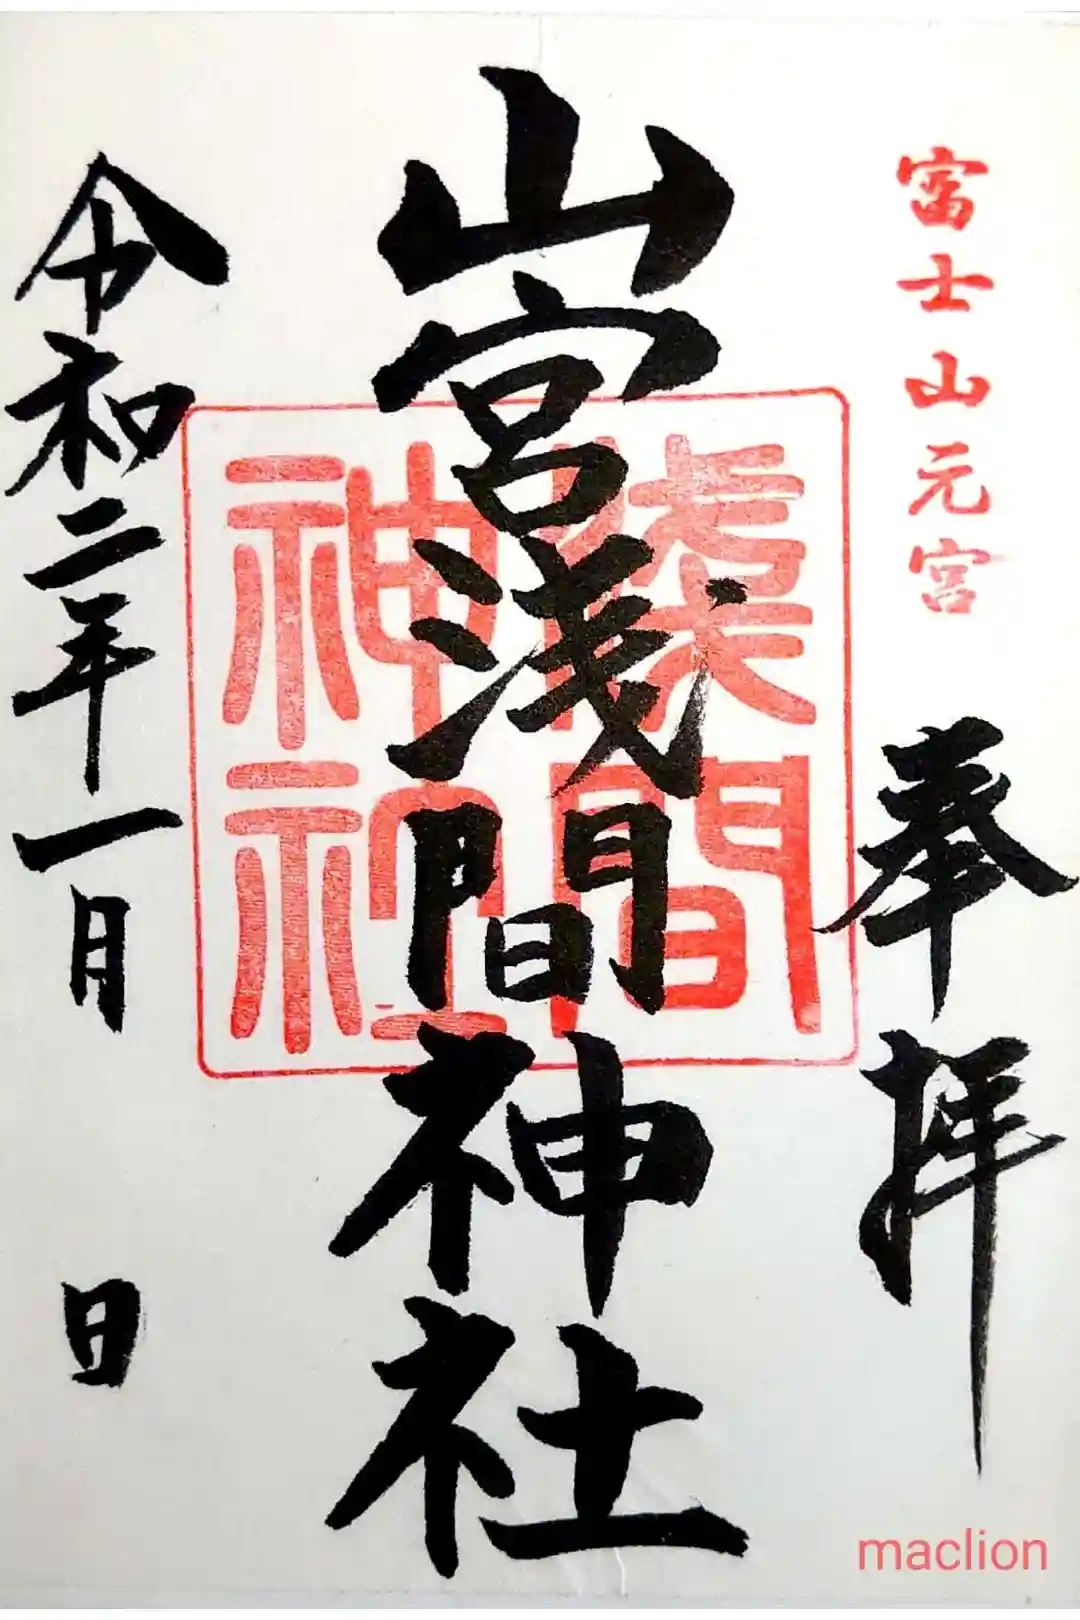 富士山元宮
奉拝
山宮浅間神社
淺間
神社
令和二年一月 日
maclion